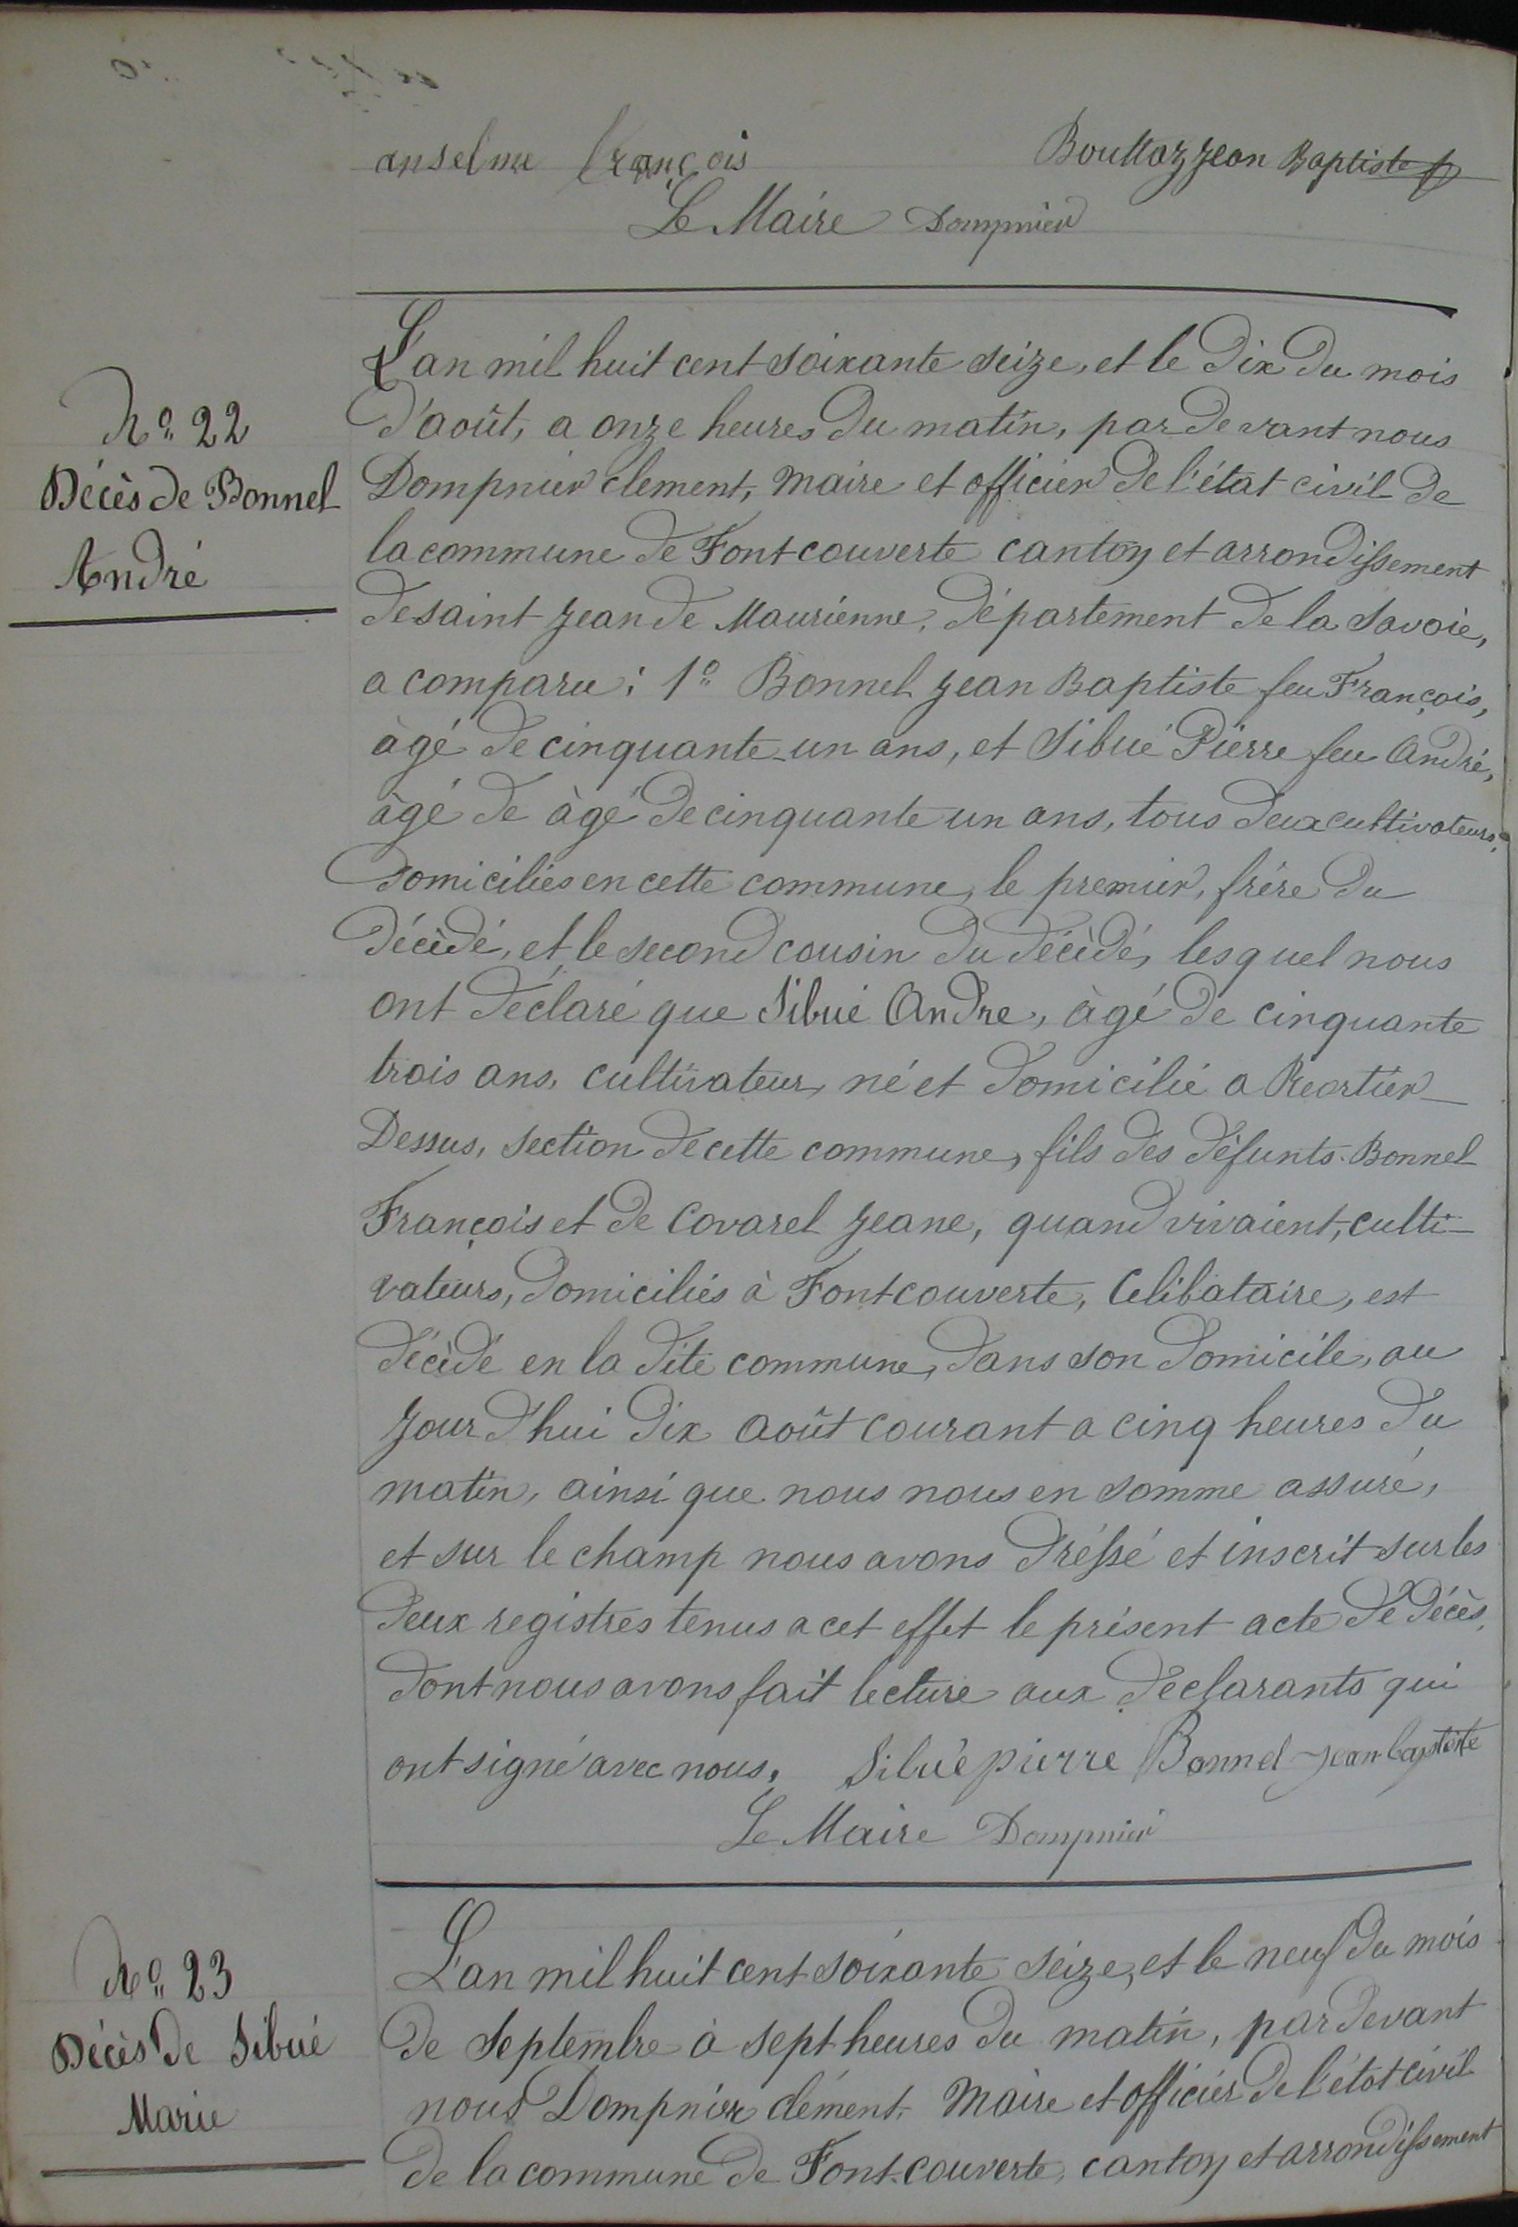 anselme françois Bouttaz Jean Baptiste
Le Maire Dompnier
L'an mil huit cent soixante seize, et le dix du mois
N° 22
d'août, a onze heures du matin, par devant nous
Décès de Bonnel
Dompnier clement, Maire et officier de l'état civil de
André
la commune de Fontcouverte canton et arrondissement
de saint Jean de Maurienne, département de la Savoie,
a comparu : 1° Bonnel Jean Baptiste feu François,
âgé de cinquante-un ans, et Sibué Pierre feu André,
âgé de âgé de cinquante un ans, tous deux cultivateurs,
domiciliés en cette commune, le premier, frère du
décédé, et le second cousin du décédé, lesquel nous
ont déclaré que Sibué Andre, âgé de cinquante
trois ans, cultivateur, né et domicilié a Reortier
Dessus, section de cette commune, fils des défunts Bonnel
François et de Covarel Jeane, quand vivaient, culti-
vateurs, domiciliés à Fontcouverte, Celibataire, est
décédé en la dite commune, dans son domicile, au
jour d'hui dix août courant a cinq heures du
matin, ainsi que nous nous en somme assuré,
et sur le champ nous avons dréssé et inscrit sur les
deux registres tenus a cet effet le présent acte de décès,
dont nous avons fait lecture aux déclarants qui
ont signé avec nous. Sibué pierre Bonnel jean-baptiste
Le Maire Dompnier
N° 23
L'an mil huit cent soixante seize, et le neuf du mois
Décès de Sibué
de Septembre à sept heures du matin, par devant
Marie
nous Dompnier clément, Maire et officier de l'état civil
de la commune de Font-couverte, canton et arrondissement